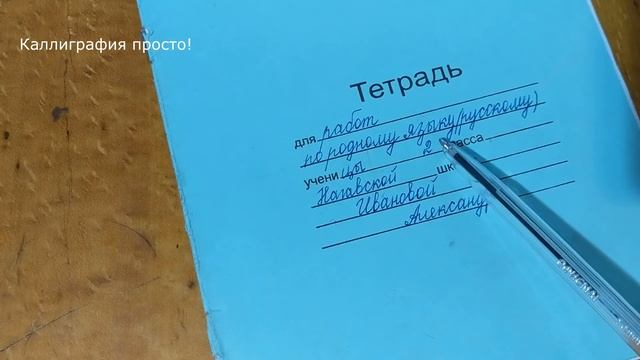 Каллиграфия просто!
Тетрадь
для работ
по родному языку(русскому)
учени цы 2 класса
Нагавской шк
Ивановой
Александ